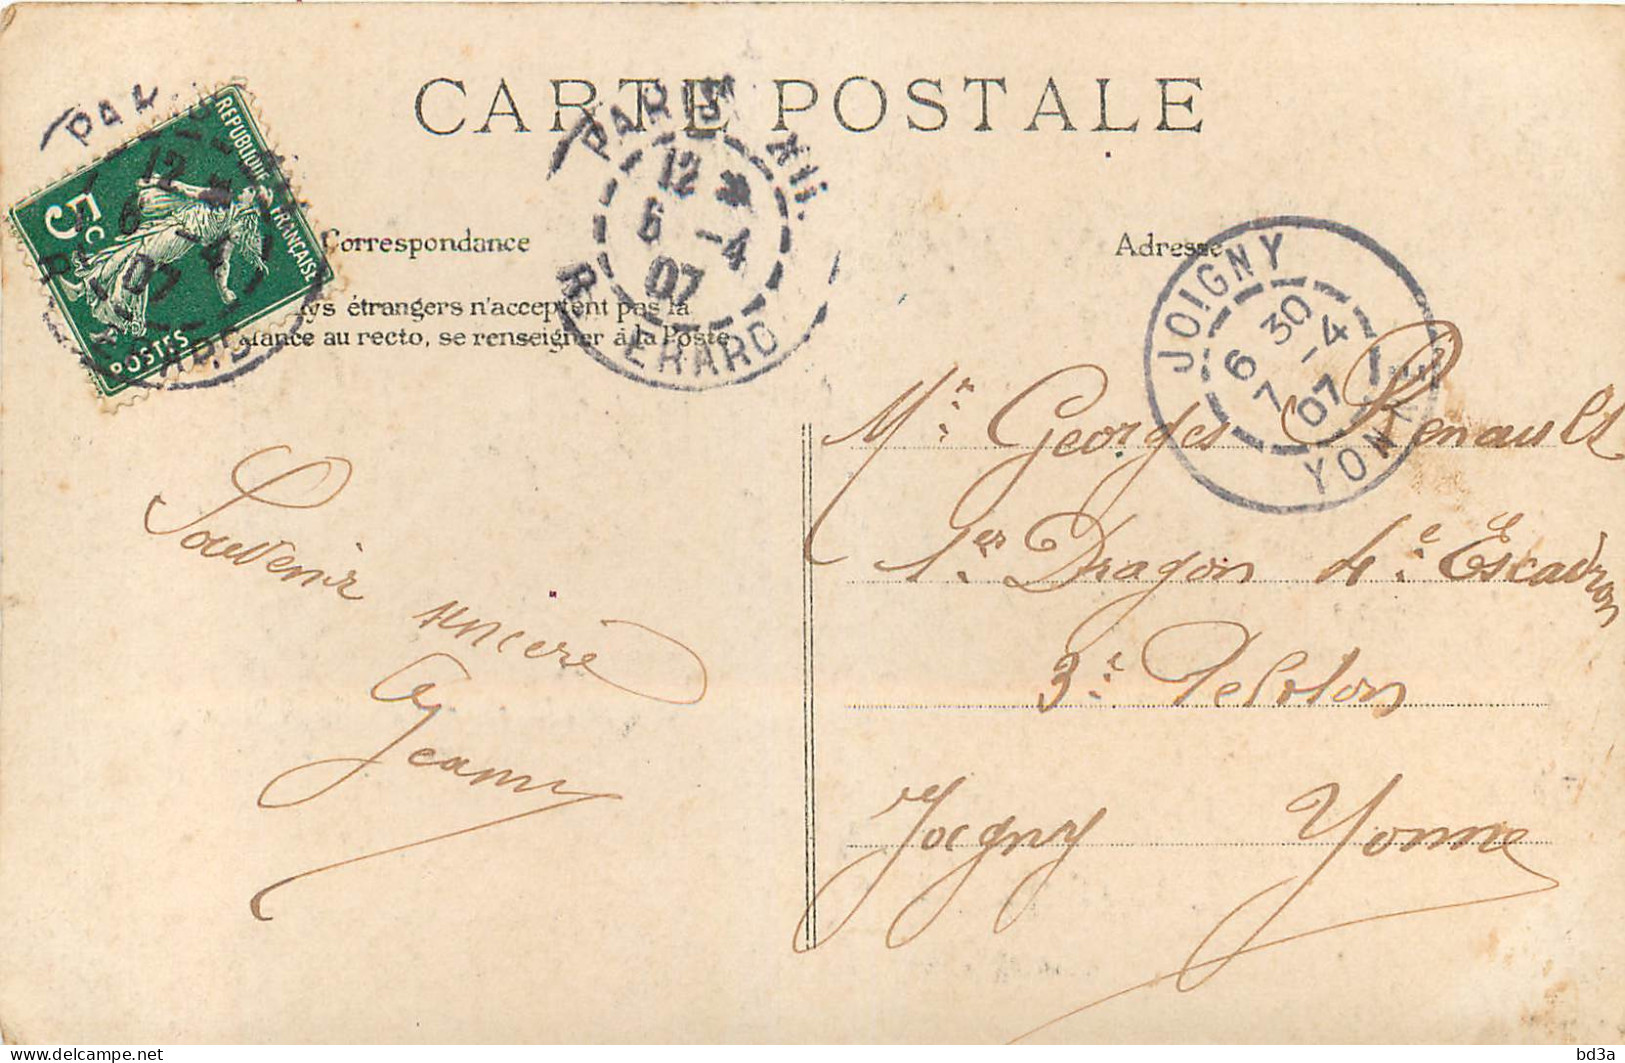 CARTE POSTALE
RÉPUBLIQUE FRANÇAISE
5c
POSTES
PARIS XII.
12
6 -4
07
R. ERARD
Correspondance
ys étrangers n'acceptent pas la
au recto, se renseigner à la Poste
Souvenir
sincère
Jeanny
Adresse
JOIGNY
6 30
7 -4
07
YONNE
Mr. Georges Renault
1er Dragon 4e Escadron
3e Peloton
Jogny Yonne
delcampe.net
bd3a